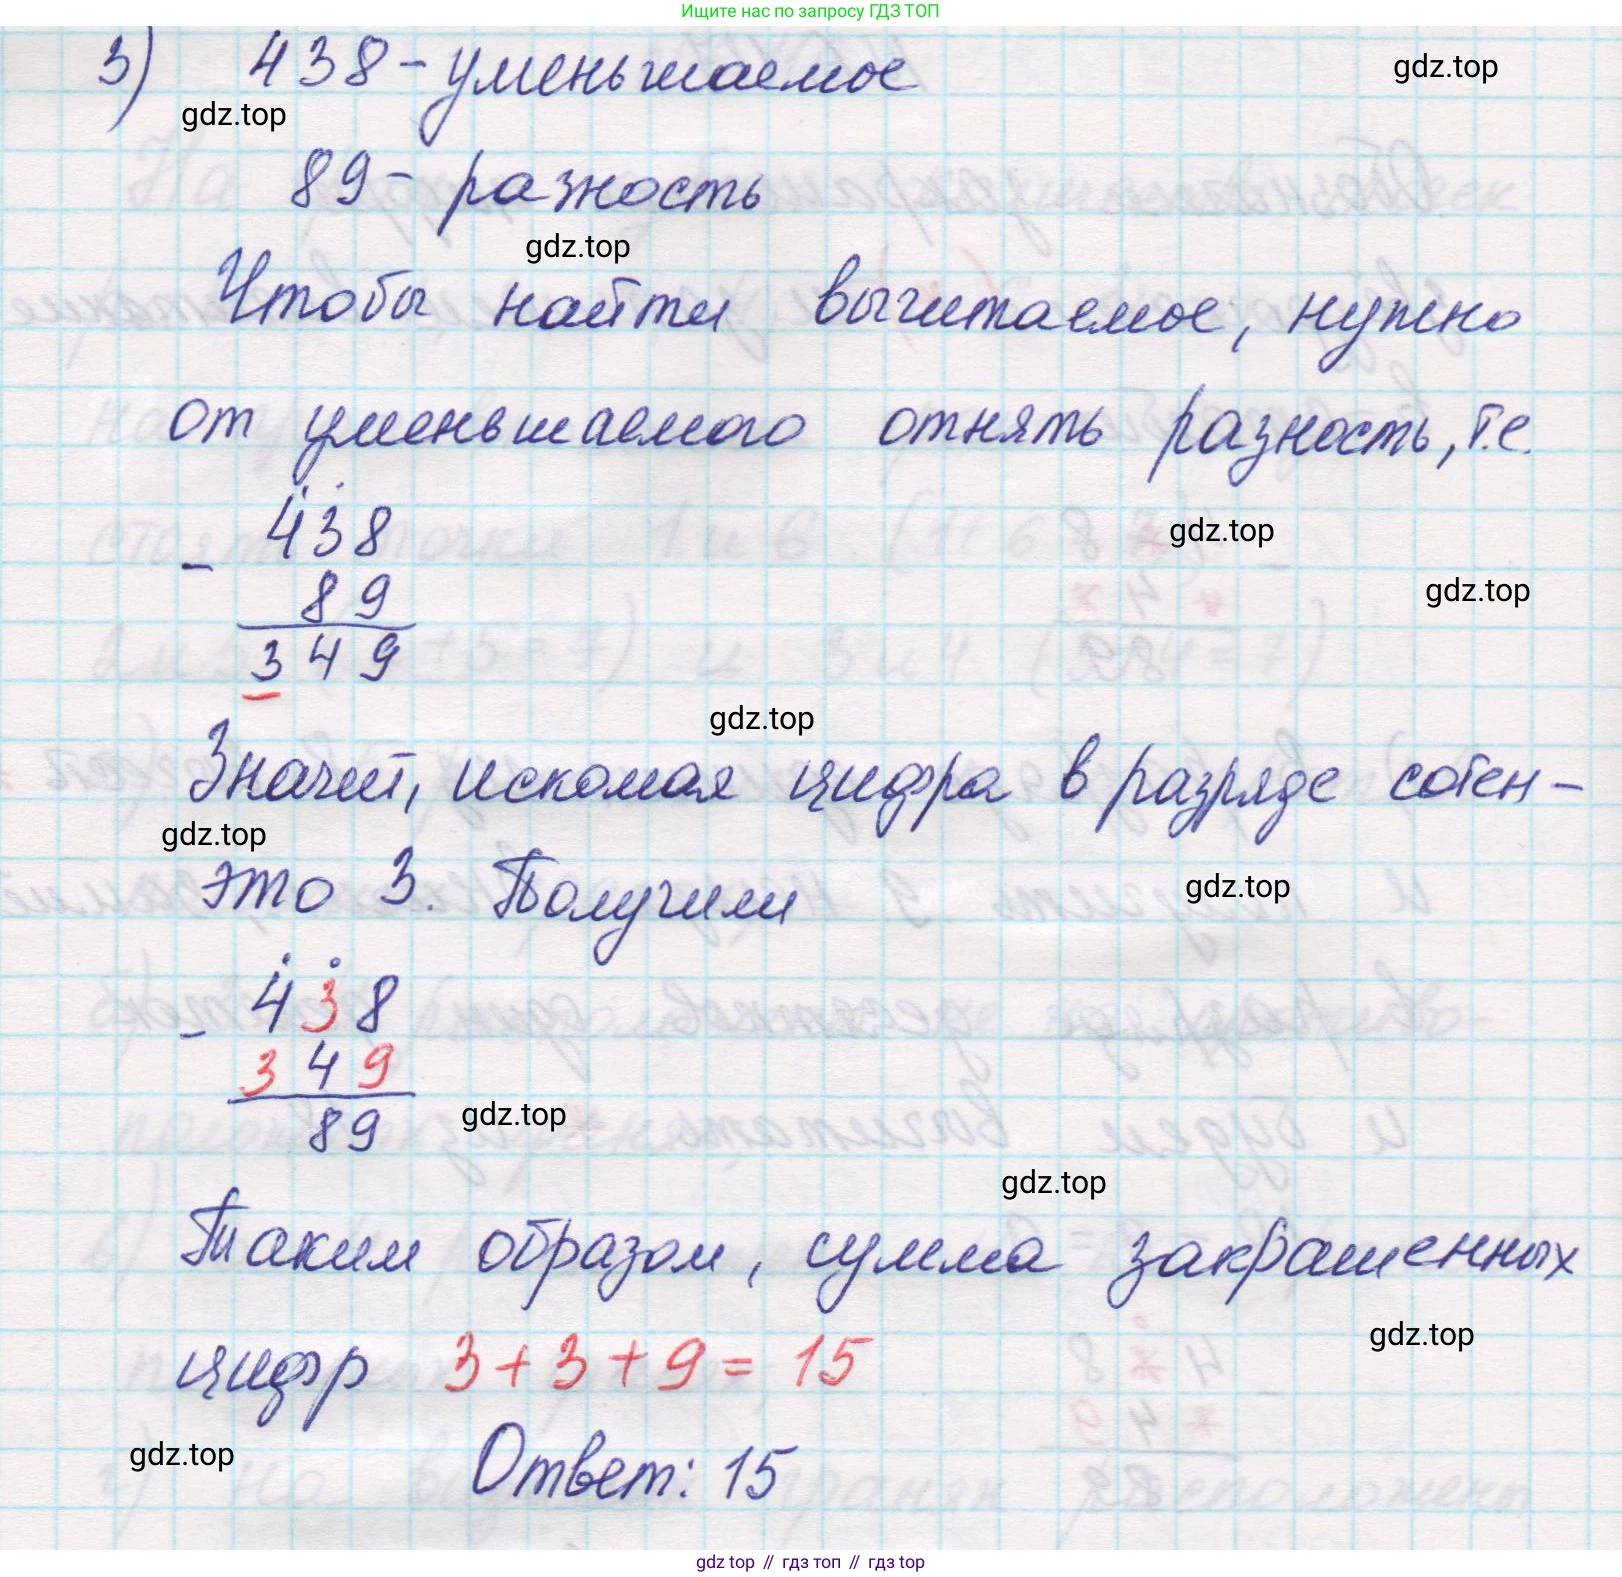 Ищите нас по запросу ГДЗ ТОП
3) 438 - уменьшаемое
gdz.top
gdz.top
89 - разность
gdz.top
Чтобы найти вычитаемое, нужно
от уменьшаемого отнять разность, т.е.
438
gdz.top
-
89
gdz.top
349
gdz.top
Значит, искомая цифра в разряде сотен -
gdz.top
это 3. Получили
gdz.top
438
-
349
89
gdz.top
gdz.top
Таким образом, сумма закрашенных
gdz.top
цифр 3+3+9=15
gdz.top
Ответ: 15
gdz top // гдз топ // гдз top